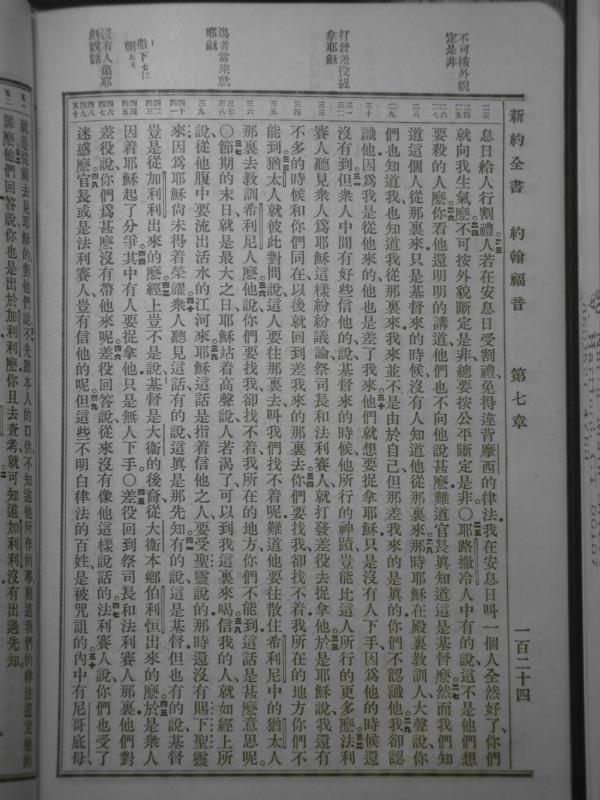 新約全書 約翰福音 第七章 一百二十四
不可按外貌
定是非
打發差役捉
拿耶穌
渴者當來就
耶穌
息日給人行割禮人若在安息日受割禮免得違背摩西的律法我在安息日叫一個人全然好了你們
就向我生氣麼不可按外貌斷定是非總要按公平斷定是非〇耶路撒冷人中有的說這不是他們想
要殺的人麼你看他還明明的講道他們也不向他說甚麼難道官長眞知道這是基督麼然而我們知
道這個人從那裏來只是基督來的時候沒有人知道他從那裏來那時耶穌在殿裏教訓人大聲說你
們也知道我也知道我從那裏來我來並不是由於自己但那差我來的是眞的你們不認識他我卻認
識他因爲我是從他來的他也是差了我來他們就想要捉拿耶穌只是沒有人下手因爲他的時候還
沒有到但衆人中間有好些信他的說基督來的時候他所行的神蹟豈能比這人所行的更多麼法利
賽人聽見衆人爲耶穌這樣紛紛議論祭司長和法利賽人就打發差役去捉拿他於是耶穌說我還有
不多的時候和你們同在以後就回到差我來的那裏去你們要找我卻找不着我所在的地方你們不
能到猶太人就彼此對問說這人要往那裏去叫我們找不着呢難道他要往散住希利尼中的猶太人
那裏去教訓希利尼人麼他說你們要找我卻找不着我所在的地方你們不能到這話是甚麼意思呢
〇節期的末日就是最大之日耶穌站着高聲說人若渴了可以到我這裏來喝信我的人就如經上所
說從他腹中要流出活水的江河來耶穌這話是指着信他之人要受聖靈說的那時還沒有賜下聖靈
來因爲耶穌尚未得着榮耀衆人聽見這話有的說這眞是那先知有的說這是基督但也有的說基督
豈是從加利利出來的麼經上豈不是說基督是大衛的後裔從大衛本鄉伯利恒出來的麼於是衆人
因着耶穌起了分爭其中有人要捉拿他只是無人下手〇差役回到祭司長和法利賽人那裏他們對
差役說你們爲甚麼沒有帶他來呢差役回答說從來沒有像他這樣說話的法利賽人說你們也受了
迷惑麼官長或是法利賽人豈有信他的呢但這些不明白律法的百姓是被咒詛的內中有尼哥底母
就是從前去見耶穌的對他們說不先聽本人的口供不知道他所作的事難道我們的律法還定他的
罪麼他們回答說你也是出於加利利麼你且去查考就可知道加利利沒有出過先知